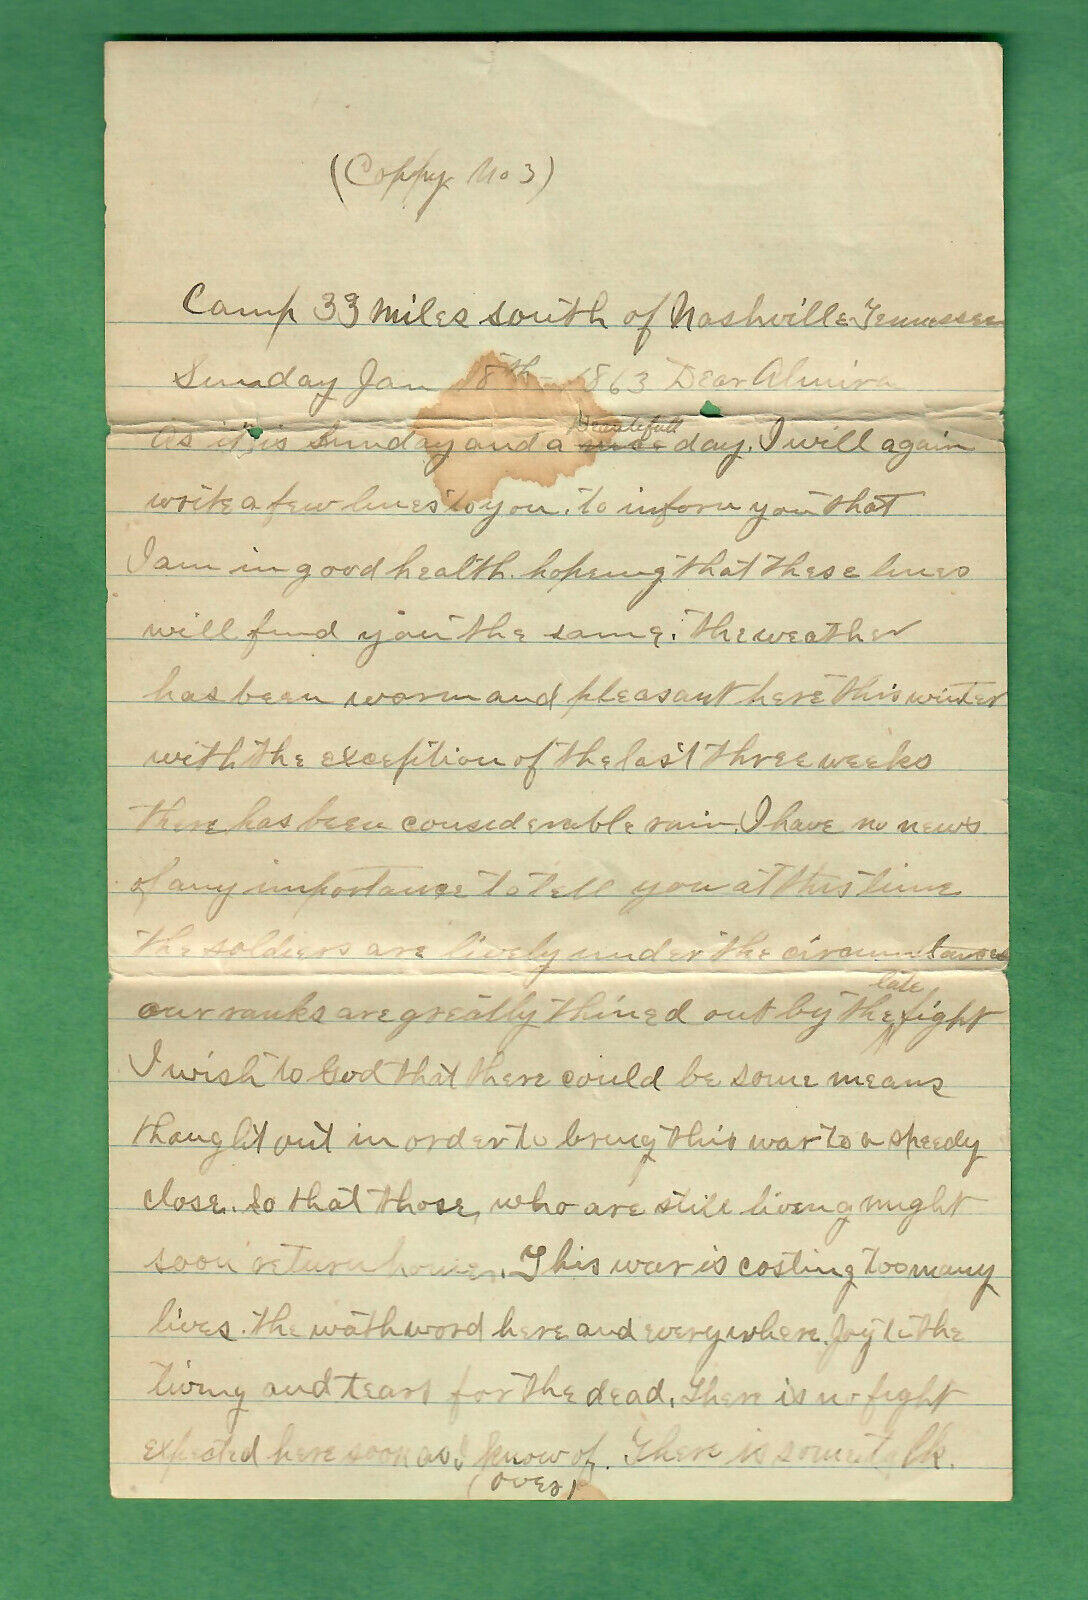 (Coppy No 3)
Camp 33 miles south of Nashville Tennessee
Sunday Jan 18th - 1863 Dear Almira
As it is Sunday and a nice Beautifull day. I will again
write a few lines to you. to inform you that
I am in good health. hopeing that these lines
will find you the same. the weather
has been worm and pleasant here this winter
with the exception of the last three weeks
there has been considerable rain. I have no news
of any importance to tell you at this time
the soldiers are lively under the circumstances
our ranks are greatly thined out by the late fight
I wish to God that there could be some means
thought out in order to bring this war to a speedy
close. So that those, who are still living might
soon return home. This war is costing too many
lives. the wathword here and everywhere. Joy to the
living and tears for the dead. There is no fight
expected here soon as I know of. There is some talk.
(over)